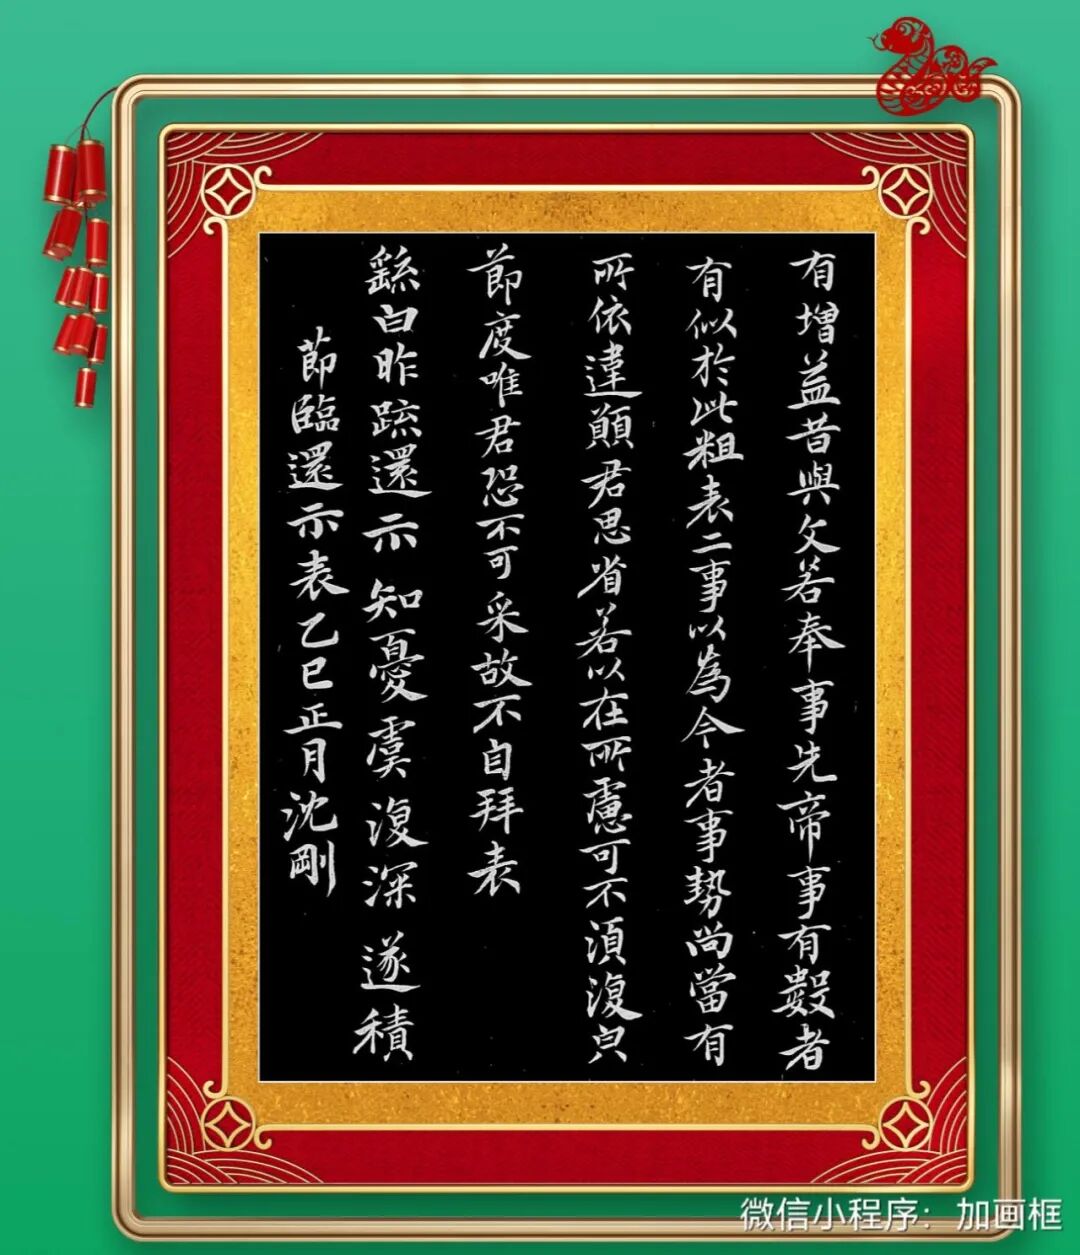 有增益昔與文若奉事先帝事有數者
有似於此粗表二事以為今者事勢尚當有
所依違願君思省若以在所慮可不須復白
節度唯君恐不可采故不自拜表
繇白昨疏還示知憂虞復深遂積
節臨還示表乙巳正月沈剛
微信小程序：加画框